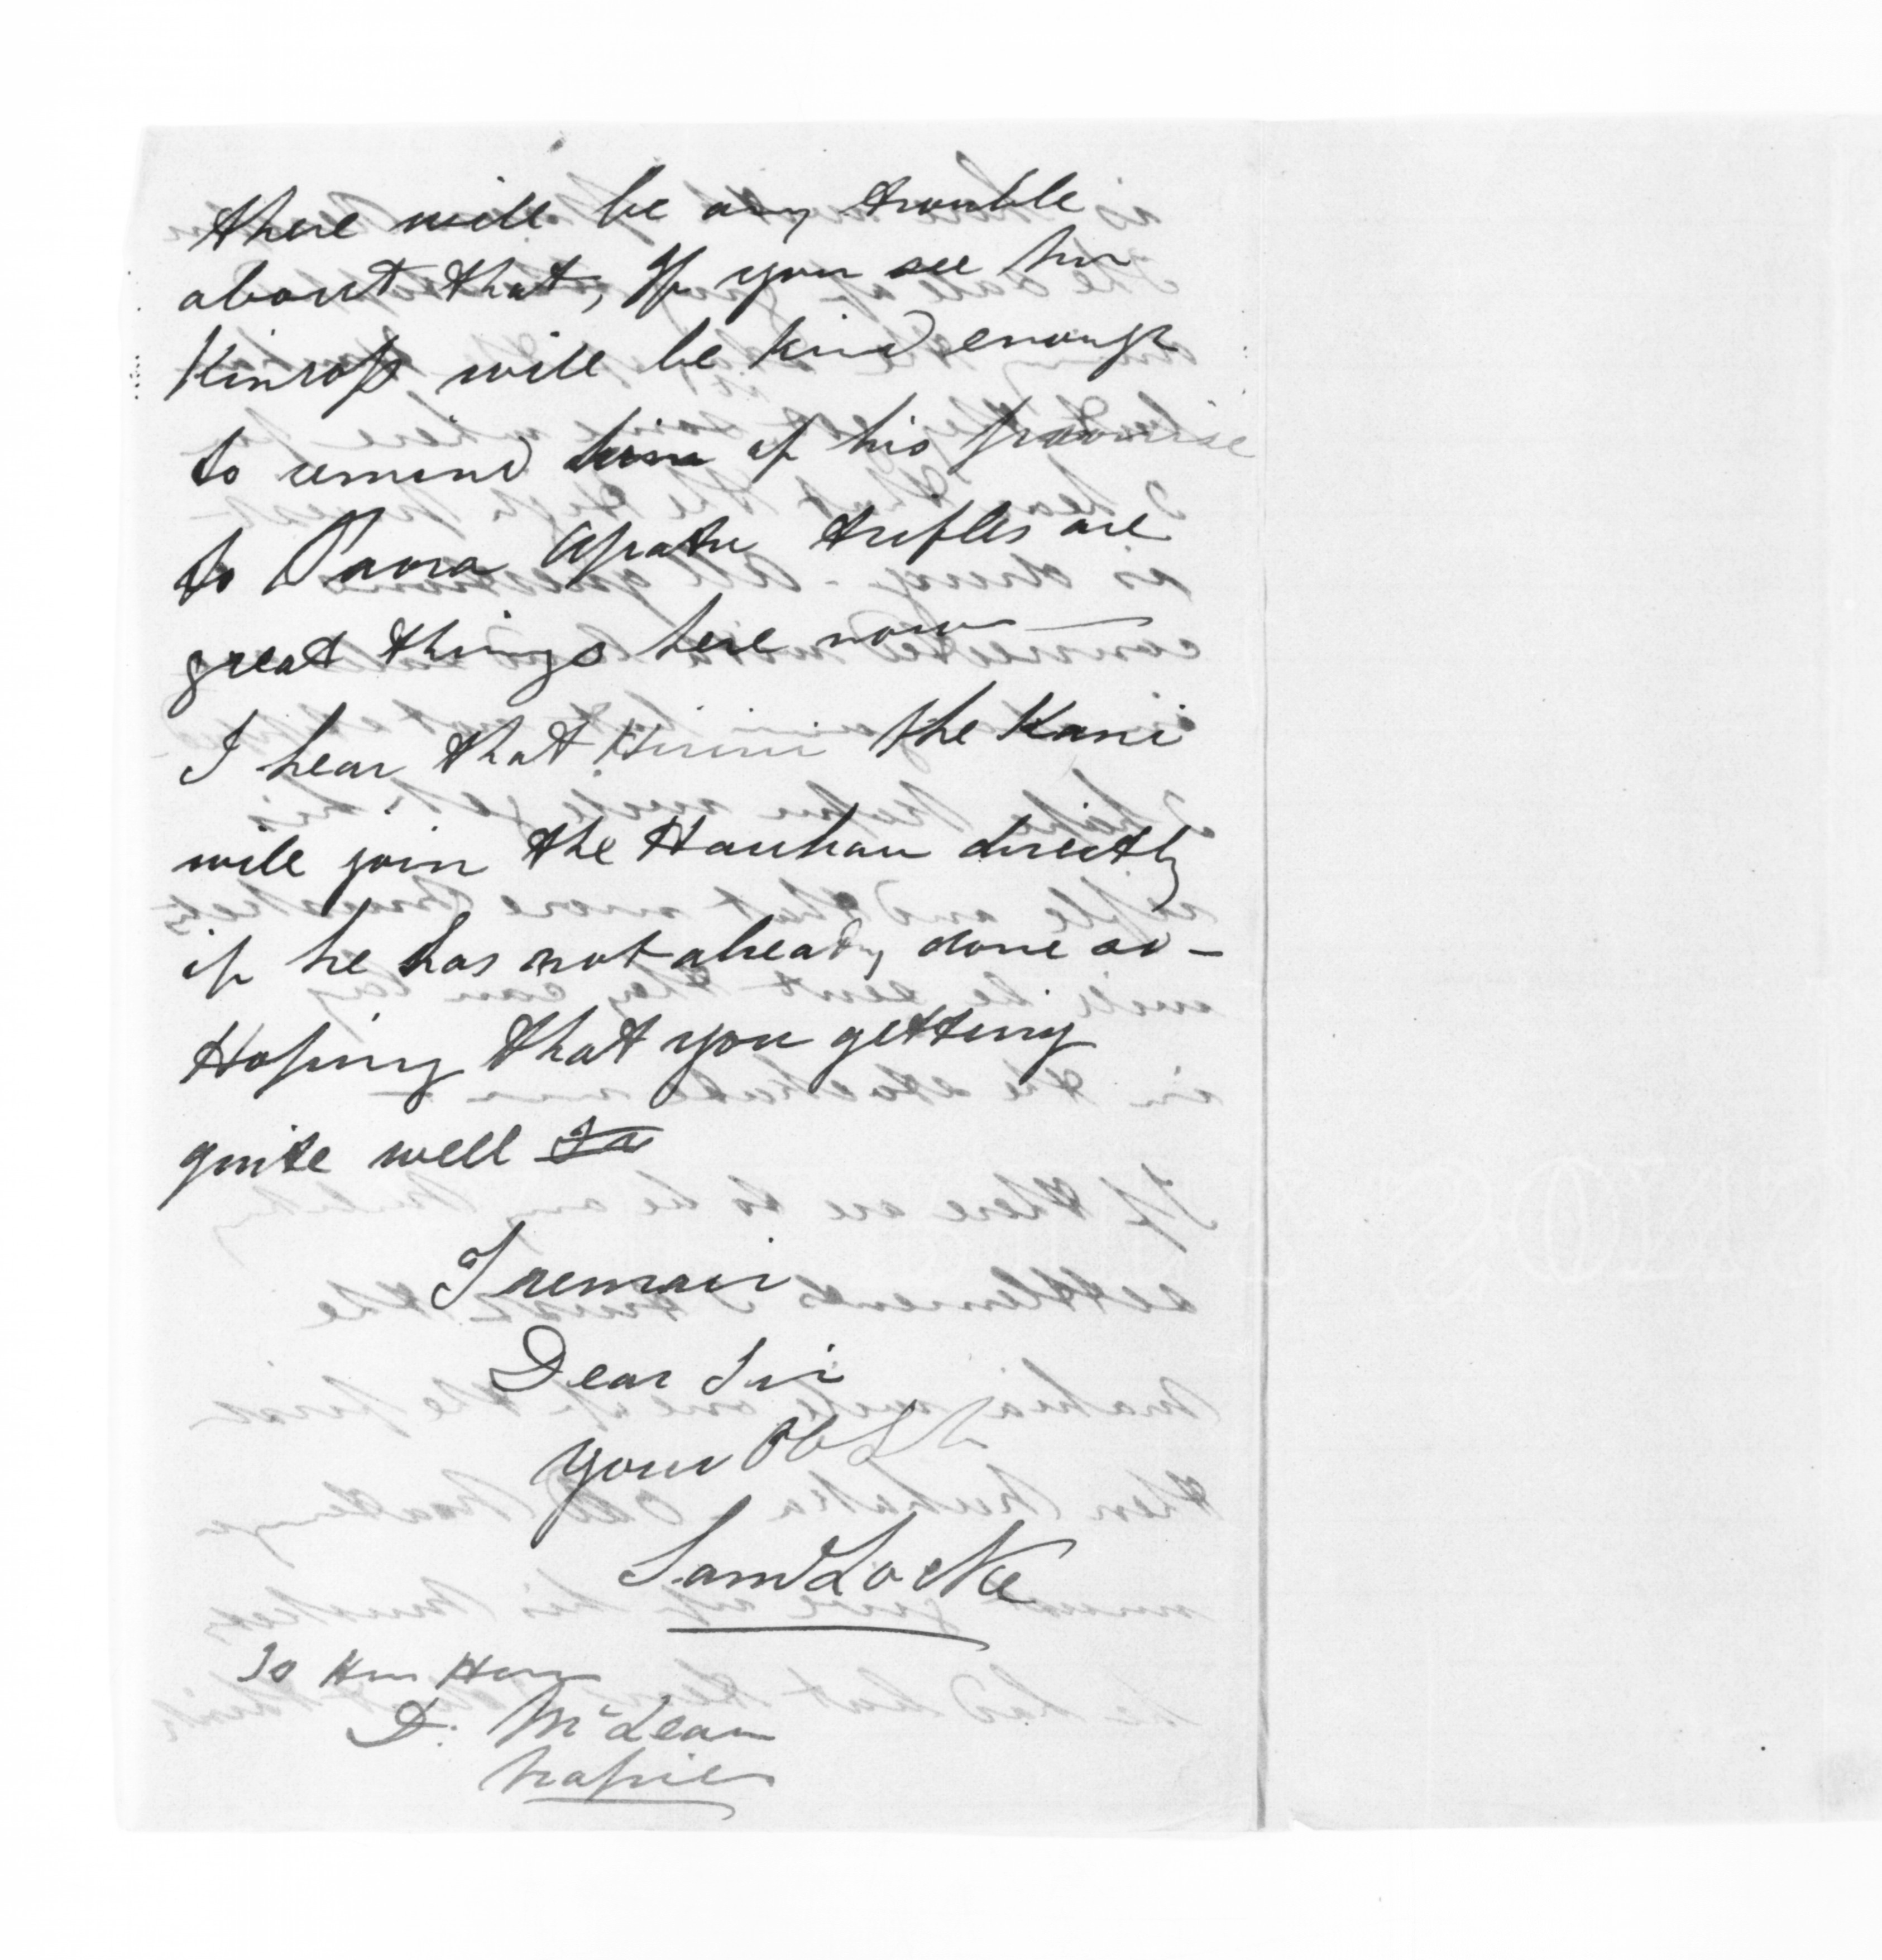 there will be any trouble
about that, If you see Mr
Kinross will be kind enough
to remind him of his promise
to Paora Apatu trifles are
great things here now —
I hear that Hirini the Kani
will join the Hauhau directly
if he has not already done so —
Hoping that you getting
quite well
I remain
Dear Sir
Your Obt
Saml Locke
To His Honor
D. McLean
Napier